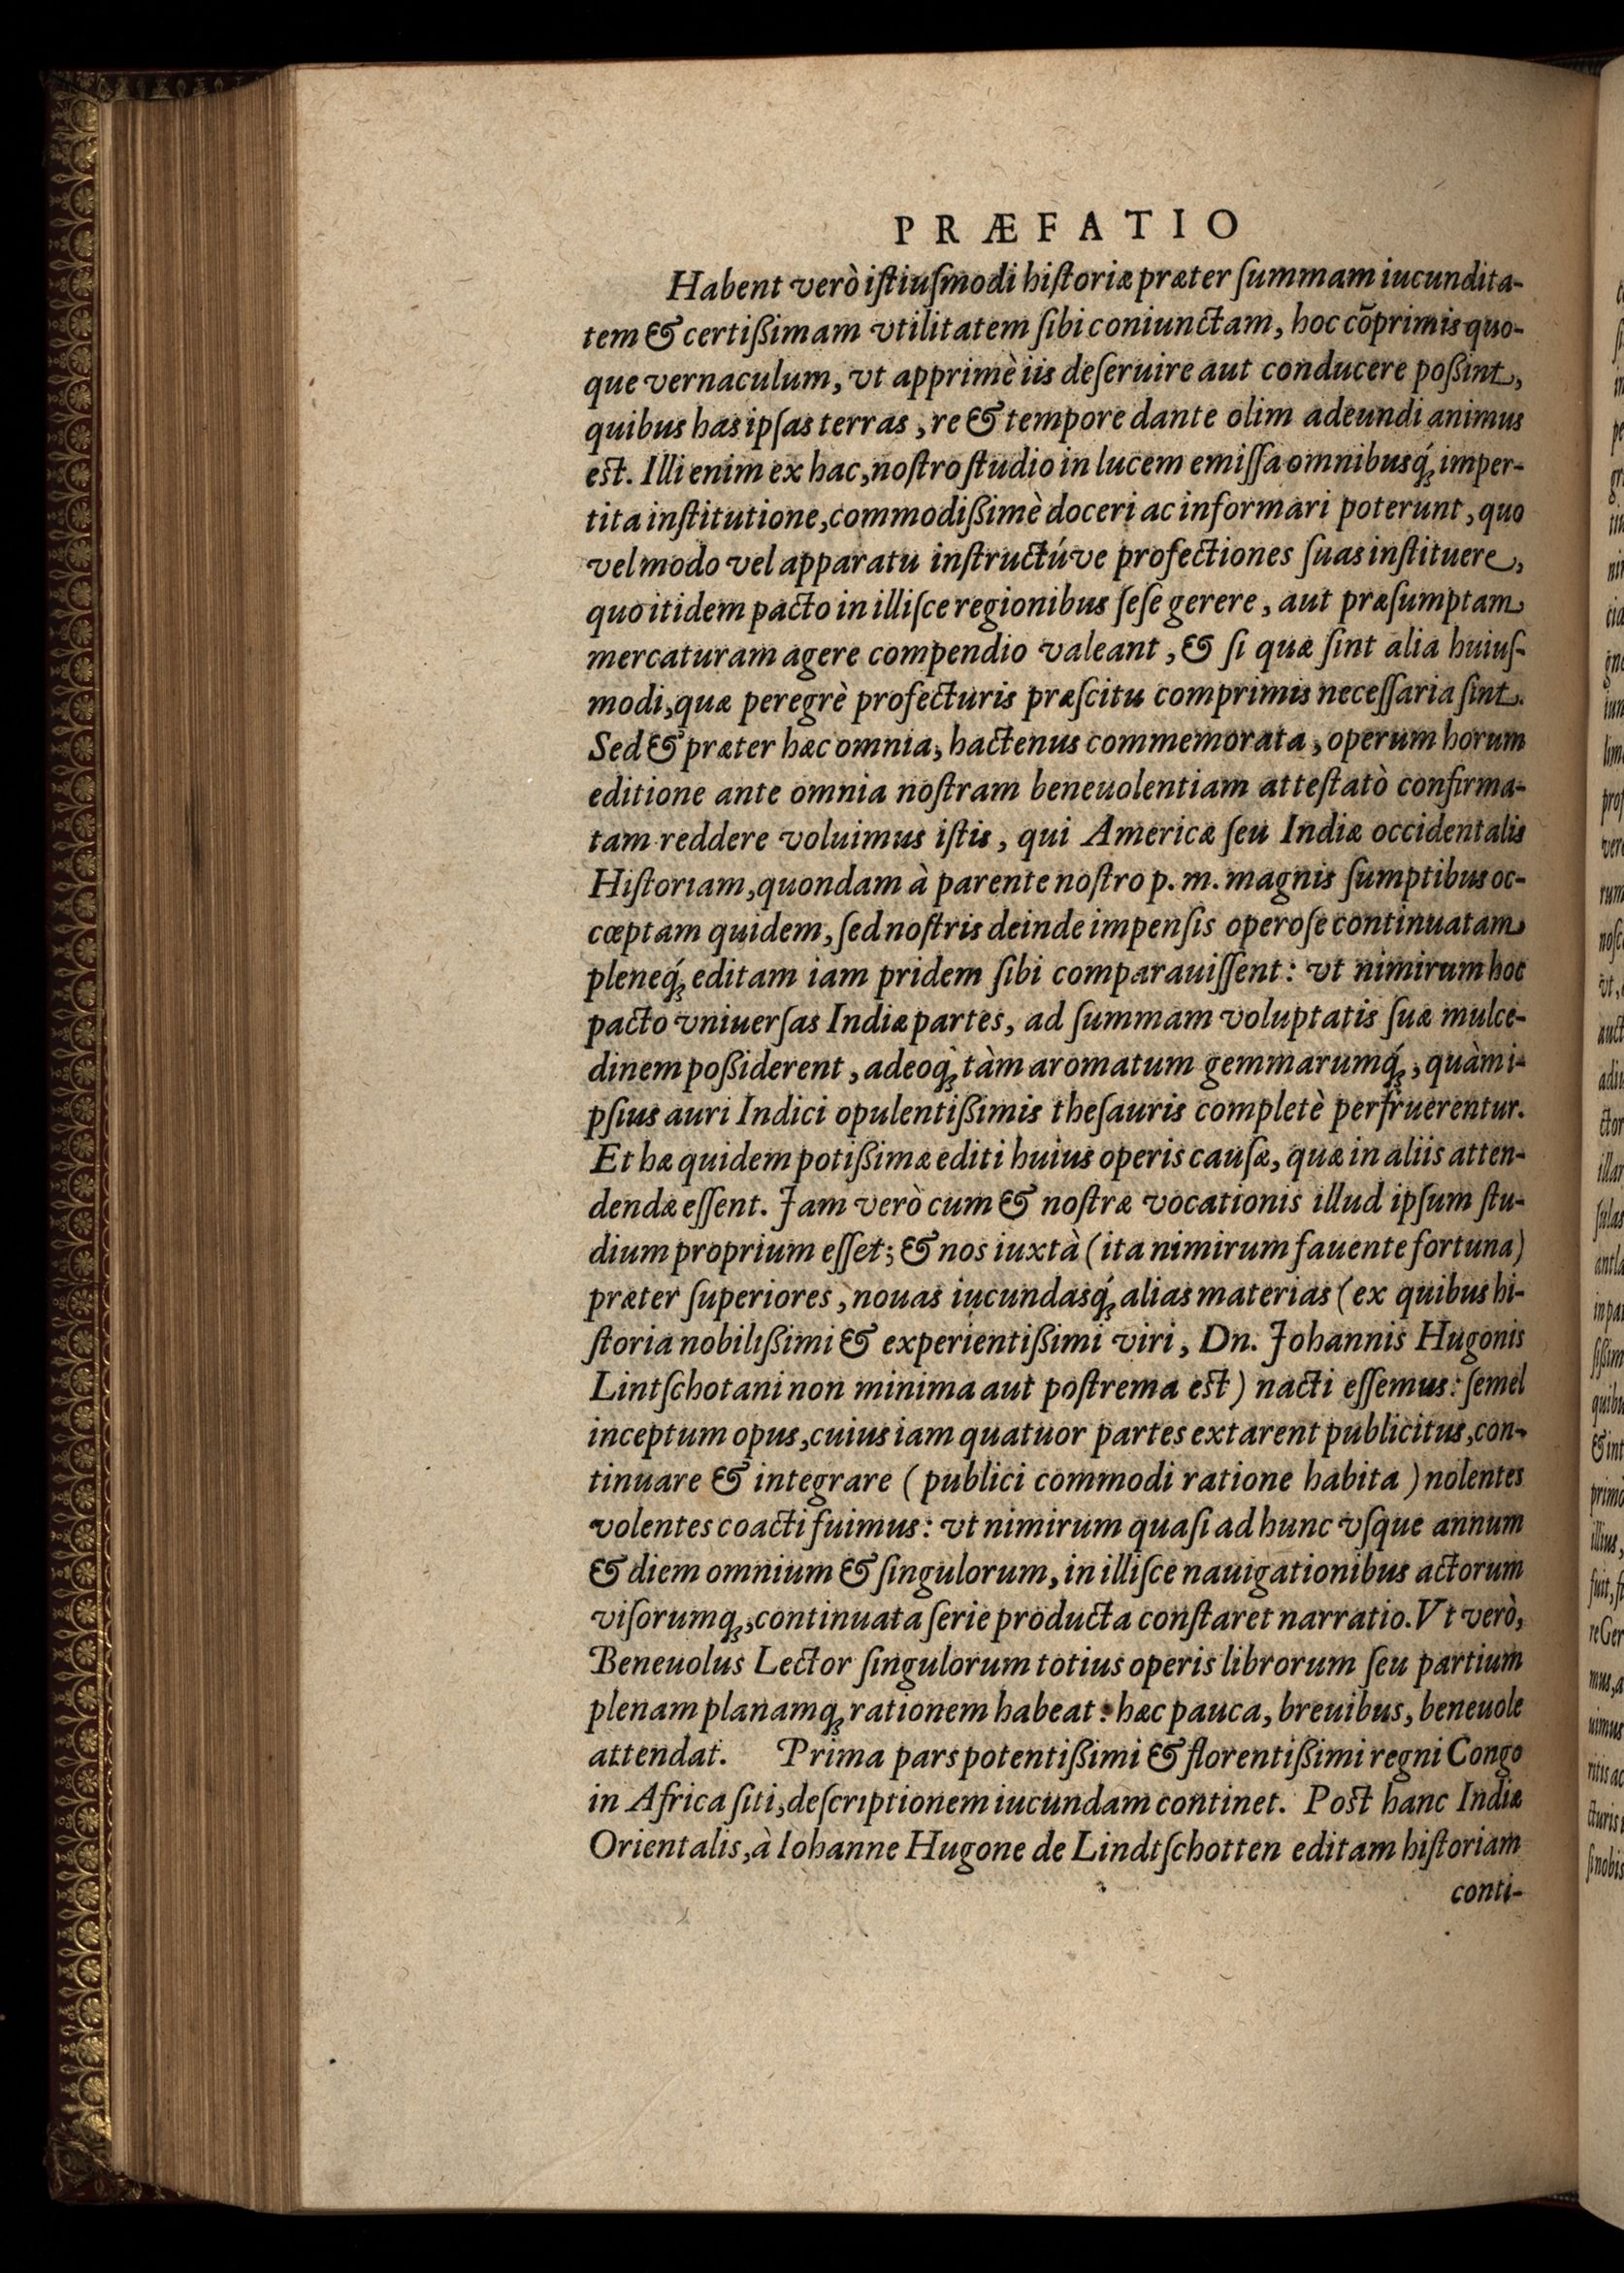 PRÆFATIO
Habent verò iſtiuſmodi hiſtoriæ præter ſummam iucundita-
tem & certißimam vtilitatem ſibi coniunctam, hoc cõprimis quo-
que vernaculum, vt apprimè iis deſeruire aut conducere poßint,
quibus has ipſas terras, re & tempore dante olim adeundi animus
est. Illi enim ex hac, noſtro ſtudio in lucem emiſſa omnibusq́; imper-
tita inſtitutione, commodißimè doceri ac informari poterunt, quo
vel modo vel apparatu inſtructúve profectiones ſuas inſtituere,
quo itidem pacto in illiſce regionibus ſeſe gerere, aut præſumptam
mercaturam agere compendio valeant, & ſi quæ ſint alia huiuſ-
modi, quæ peregrè profecturis præſcitu comprimis neceſſaria ſint.
Sed & præter hæc omnia, hactenus commemorata, operum horum
editione ante omnia noſtram beneuolentiam atteſtatò confirma-
tam reddere voluimus iſtis, qui Americæ ſeu Indiæ occidentalis
Hiſtoriam, quondam à parente noſtro p. m. magnis ſumptibus oc-
cœptam quidem, ſed noſtris deinde impenſis operoſe continuatam
pleneq́; editam iam pridem ſibi comparauiſſent: vt nimirum hoc
pacto vniuerſas Indiæ partes, ad ſummam voluptatis ſuæ mulce-
dinem poßiderent, adeoq̀; tàm aromatum gemmarumq́;, quàm i-
pſius auri Indici opulentißimis theſauris completè perfruerentur.
Et hæ quidem potißimæ editi huius operis cauſæ, quæ in aliis atten-
dendæ eſſent. Jam verò cum & noſtræ vocationis illud ipſum ſtu-
dium proprium eſſet; & nos iuxtà (ita nimirum fauente fortuna)
præter ſuperiores, nouas iucundasq́; alias materias (ex quibus hi-
ſtoria nobilißimi & experientißimi viri, Dn. Johannis Hugonis
Lintſchotani non minima aut poſtrema est) nacti eſſemus: ſemel
inceptum opus, cuius iam quatuor partes extarent publicitus, con-
tinuare & integrare (publici commodi ratione habita) nolentes
volentes coacti fuimus: vt nimirum quaſi ad hunc vſque annum
& diem omnium & ſingulorum, in illiſce nauigationibus actorum
viſorumq;, continuata ſerie producta conſtaret narratio. Vt verò,
Beneuolus Lector ſingulorum totius operis librorum ſeu partium
plenam planamq; rationem habeat: hæc pauca, breuibus, beneuole
attendat. Prima pars potentißimi & florentißimi regni Congo
in Africa ſiti, deſcriptionem iucundam continet. Post hanc Indiæ
Orientalis, à Iohanne Hugone de Lindtſchotten editam hiſtoriam
conti-